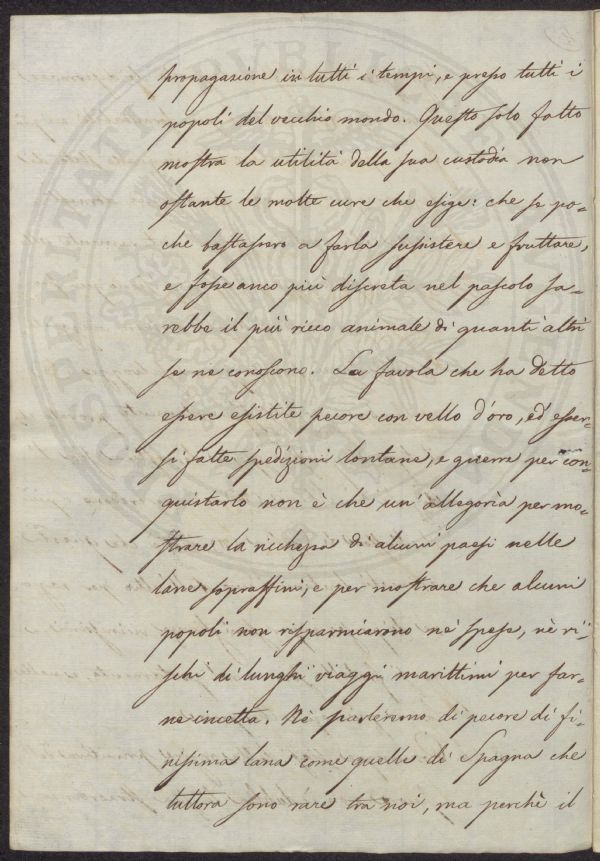 propagazione in tutti i tempi, e presso tutti i
popoli del vecchio mondo. Questo solo fatto
mostra la utilità della sua custodia non
ostante le molte cure che esige: che se po-
che bastassero a farla sussistere e fruttare,
e fosse anco più discreta nel pascolo sa-
rebbe il più ricco animale di quanti altri
se ne conoscono. La favola che ha detto
essere esistite pecore con vello d'oro, ed esser-
si fatte spedizioni lontane, e guerre per con-
quistarlo non è che un'allegorìa per mo-
strare la ricchezza di alcuni paesi nelle
lane sopraffini, e per mostrare che alcuni
popoli non risparmiarono nè spese, nè ri-
schi di lunghi viaggi marittimi per far-
ne incetta. Nè parleremo di pecore di fi-
nissima lana come quelle di Spagna che
tuttora sono rare tra noi, ma perchè il